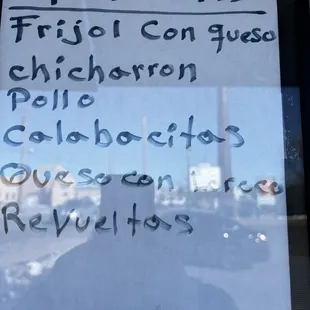 Frijol Con queso
chicharron
Pollo
Calabacitas
Queso con
Revueltas